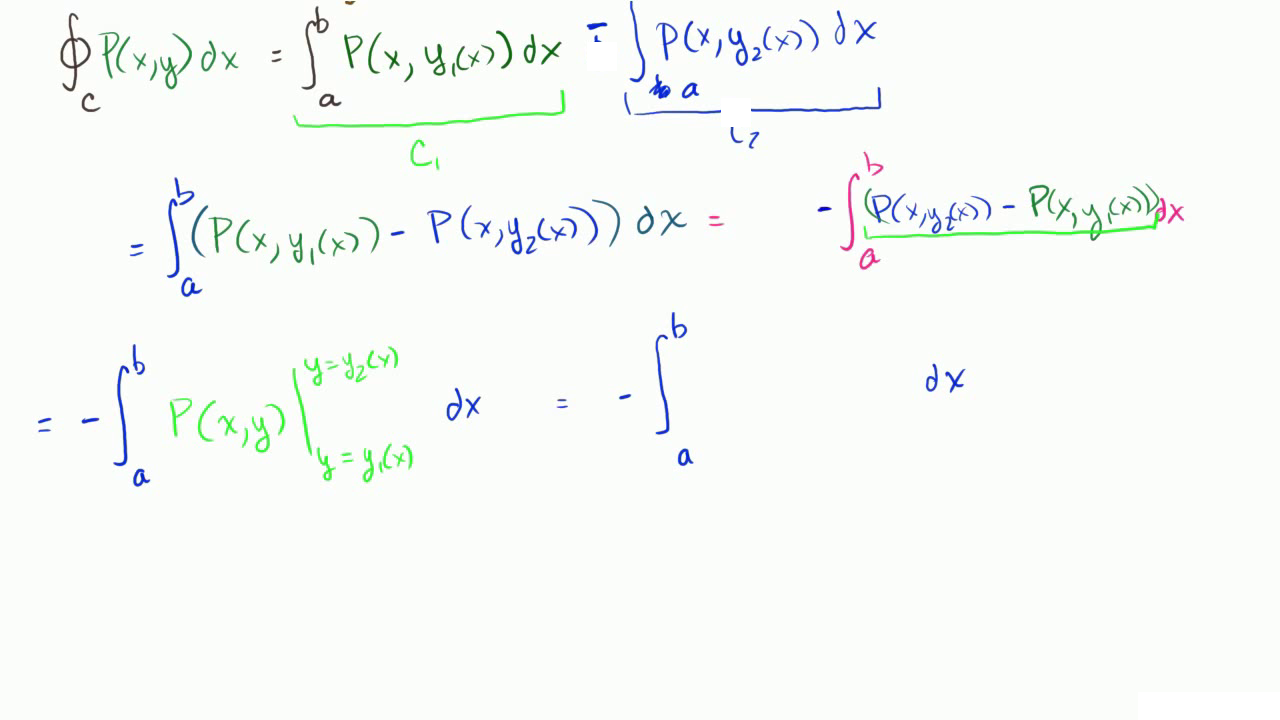 ∮_C P(x,y)dx = ∫_a^b P(x, y₁(x))dx - ∫_a P(x, y₂(x)) dx
C₁ C₂
= ∫_a^b (P(x, y₁(x)) - P(x, y₂(x))) dx = - ∫_a^b (P(x,y₂(x)) - P(x, y₁(x)))dx
= - ∫_a^b P(x,y) |_{y = y₁(x)}^{y = y₂(x)} dx = - ∫_a^b dx